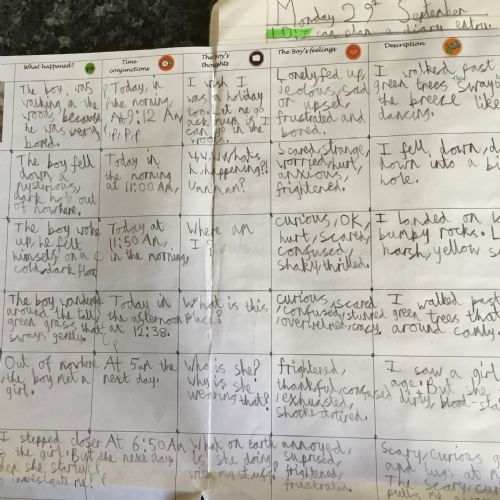 Monday 29th September
can plan a diary entry.
What happened?
Time conjunctions
The Boy's thoughts
The Boy's feelings
Description
The boy was
walking in the
woods because
he was very
bored.
Today, in
the morning
At 9:12 Am
I wish I
was a holiday
too. Let me go
ask mum is I
can go in the
woods.
Lonely, fed up,
jealous, sad
or upset,
frustrated and
bored.
I walked past
green trees that sway
the breeze like
dancing.
The boy fell
down a
mysterious,
dark hole out
of nowhere.
Today in
the morning
at 11:00 Am,
happening?!
Scared, strange,
worried, hurt,
anxious,
frightened.
I fell, down, d
down into a bi
hole.
The boy woke
up, he felt
himself on a
cold, dark floor
Today at
11:50 Am,
in the morning.
Where am
I?
curious, OK,
hurt, scared,
confused,
shaky, thrilled.
I landed on
bumpy rocks.
harsh, yellow s
The boy wandered
around the tall,
green grass that
sways gently.
Today in
the afternoon
at 12:38.
What is this
place?
curious, scared
, confused, stunned
, overwelmed, crazy.
I walked past
green trees that
around candy.
Out of nowhere
, the boy met a
girl.
At 5am the
next day.
Who is she?
Why is she
wearing that?
frightened,
thankful, confused
, exhuasted,
shocked, tired.
I saw a girl
age. But she
dirty, blood-st
I stepped closer
to the girl. But
then she started
to investigate me!
At 6:50 Am
the next day
What on earth
is she doing
with my stuff?
annoyed,
suprised,
frightened,
frustrated.
Scary, curious g
and lugs at
The scary, cu
pulls